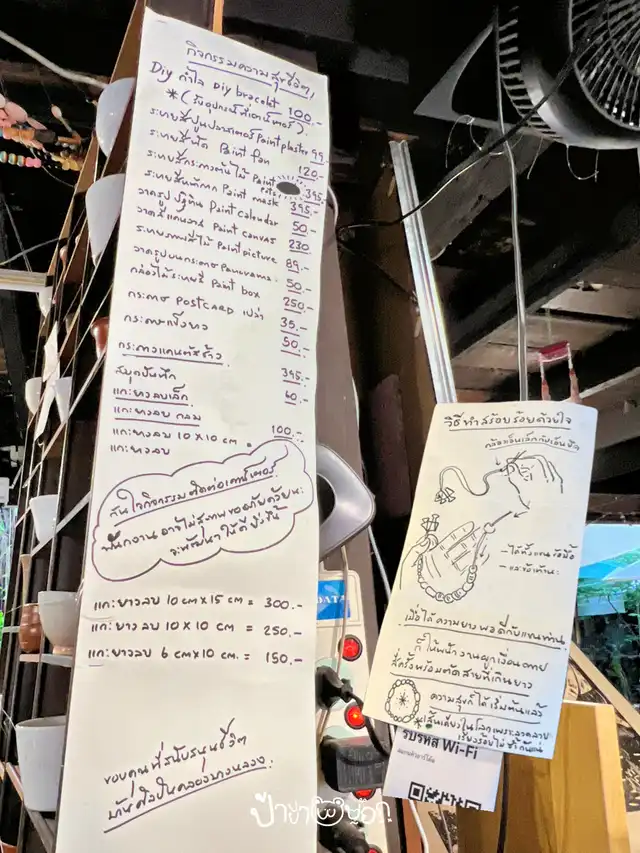 กิจกรรมความสุขชีวิต,
Diy กำไล Diy bracelet 100.-
*(รับอุปกรณ์ที่เคาน์เตอร์)
ระบายสีปูนปลาสเตอร์ Paint plaster 99.-
ระบายสีพัด Paint fan 120.-
ระบายสีกระถางต้นไม้ Paint 395.-
ระบายสีหน้ากาก Paint mask 395.-
วาดรูปปฏิทิน Paint calendar 50.-
วาดสีแคนวาส Paint canvas 230
ระบายภาพสีไม้ Paint picture 89.-
วาดรูปบนกระดาษ Panorama 50.-
กล่องไม้ระบายสี Paint box 250.-
กระดาษ POSTCARD เปล่า 35.-
50.-
สมุดบันทึก 395.-
แกะยางลบเล็ก 60.-
แกะยางลบ กลม
แกะยางลบ 10 x 10 cm = 100.-
แกะยางลบ
สนใจกิจกรรมติดต่อเคาน์เตอร์
พนักงานอาจไม่สุภาพขออภัยด้วยนะ
จะพัฒนาให้ดียิ่งขึ้น
แกะยางลบ 10 cm x 15 cm = 300.-
แกะยางลบ 10 x 10 cm = 250.-
แกะยางลบ 6 cm x 10 cm. = 150.-
ขอบคุณที่สนับสนุนชีวิต
บ้านศิลปินคลองบางหลวง.
DATA
วิธีทำสร้อยร้อยด้วยใจ
- ได้ทั้งแขนข้อมือ
- และข้อเท้านะ
เมื่อได้ความยาวพอดีกับแขนท่าน
ก็ให้พนักงานผูกเงื่อนตาย
สี่ครั้งพร้อมตัดสายที่เกินยาว
ความสุขก็ได้เริ่มต้นแล้ว
*เส้นเดียวในโลกเพราะลวดลาย
เรียงร้อยไม่ซ้ำกันแน่
รับรหัส Wi-Fi
ป้ายาพาบอก